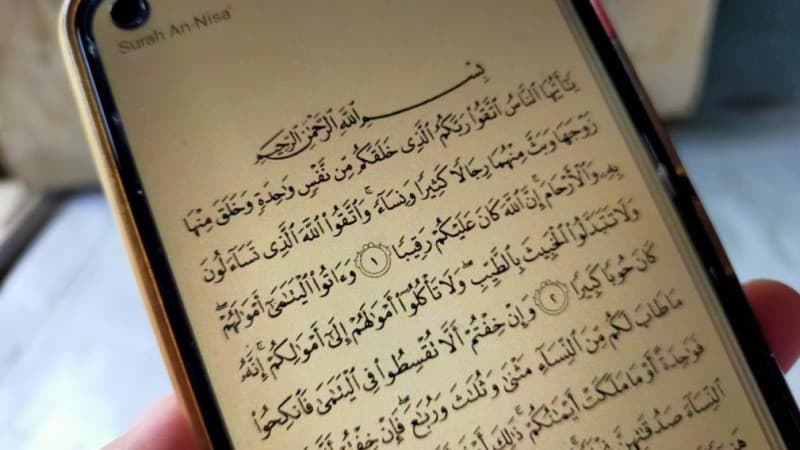 Surah An-Nisa'
بِسْمِ ٱللَّهِ ٱلرَّحْمَٰنِ ٱلرَّحِيمِ
يَٰٓأَيُّهَا ٱلنَّاسُ ٱتَّقُوا۟ رَبَّكُمُ ٱلَّذِى خَلَقَكُم مِّن نَّفْسٍ وَٰحِدَةٍ وَخَلَقَ مِنْهَا
زَوْجَهَا وَبَثَّ مِنْهُمَا رِجَالًا كَثِيرًا وَنِسَآءً ۚ وَٱتَّقُوا۟ ٱللَّهَ ٱلَّذِى تَسَآءَلُونَ
بِهِۦ وَٱلْأَرْحَامَ ۚ إِنَّ ٱللَّهَ كَانَ عَلَيْكُمْ رَقِيبًا ١ وَءَاتُوا۟ ٱلْيَتَٰمَىٰٓ أَمْوَٰلَهُمْ ۖ
وَلَا تَتَبَدَّلُوا۟ ٱلْخَبِيثَ بِٱلطَّيِّبِ ۖ وَلَا تَأْكُلُوٓا۟ أَمْوَٰلَهُمْ إِلَىٰٓ أَمْوَٰلِكُمْ ۚ إِنَّهُۥ
كَانَ حُوبًا كَبِيرًا ٢ وَإِنْ خِفْتُمْ أَلَّا تُقْسِطُوا۟ فِى ٱلْيَتَٰمَىٰ فَٱنكِحُوا۟
مَا طَابَ لَكُم مِّنَ ٱلنِّسَآءِ مَثْنَىٰ وَثُلَٰثَ وَرُبَٰعَ ۖ فَإِنْ خِفْتُمْ
فَوَٰحِدَةً أَوْ مَا مَلَكَتْ أَيْمَٰنُكُمْ ۚ ذَٰلِكَ
ٱلنِّسَآءَ صَدُقَٰتِهِنَّ